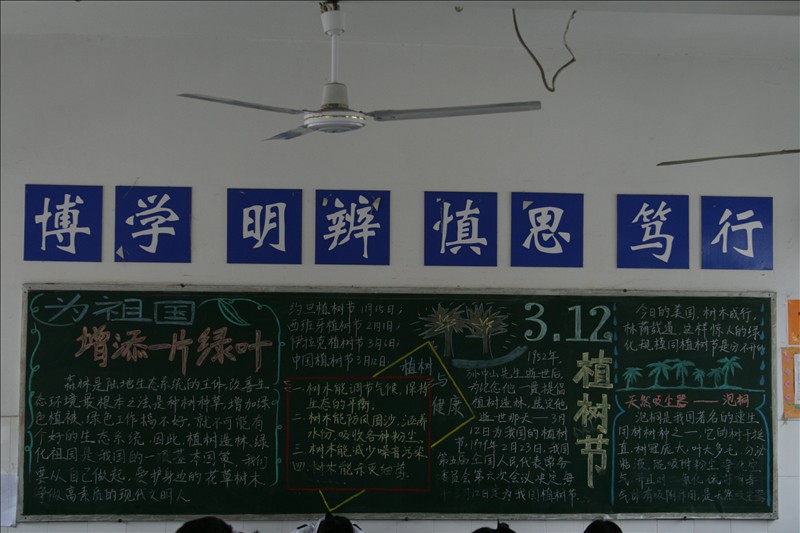 博学 明辨 慎思 笃行
为祖国
增添一片绿叶
森林是陆地生态系统的主体,改善生
态环境,最根本之法是种树种草,增加绿
色植被,绿色工作搞不好,就不可能有
良好的生态系统。因此,植树造林,绿
化祖国是我国的一项基本国策,我们
要从自己做起,爱护身边的花草树木
争做高素质的现代文明人
约旦植树节 1月15日;
西班牙植树节 2月1日;
伊拉克植树节 3月6日;
中国植树节 3月12日
植树
与
健康
一、树木能调节气候,保持
生态的平衡。
二、树木能防风固沙,涵养
水份,吸收各种粉尘
三、树木能减少噪音污染
四、树木能杀灭细菌
3.12
植树节
孙中山先生逝世后
为纪念他一贯提倡
植树造林
逝世那天——3月
12日为我国的植树
节,1979年2月23日,我国
第五届全国人民代表常务
委员会第六次会议决定每
年3月12日是为我国植树节
今日的美国,树木成行,
林荫载道,这样惊人的绿
化规模同植树节是分不开的
天然吸尘器——泡桐
泡桐是我国著名的速生
用材树种之一,它的树干挺
直,树冠庞大,叶大多毛,分泌